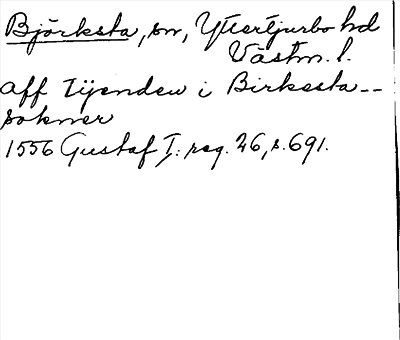 Björksta, sn, Yttertjurbo hd
Västm. l.
aff tijenden i Birkesta--
sokner
1556 Gustaf I: reg. 26, s. 691.